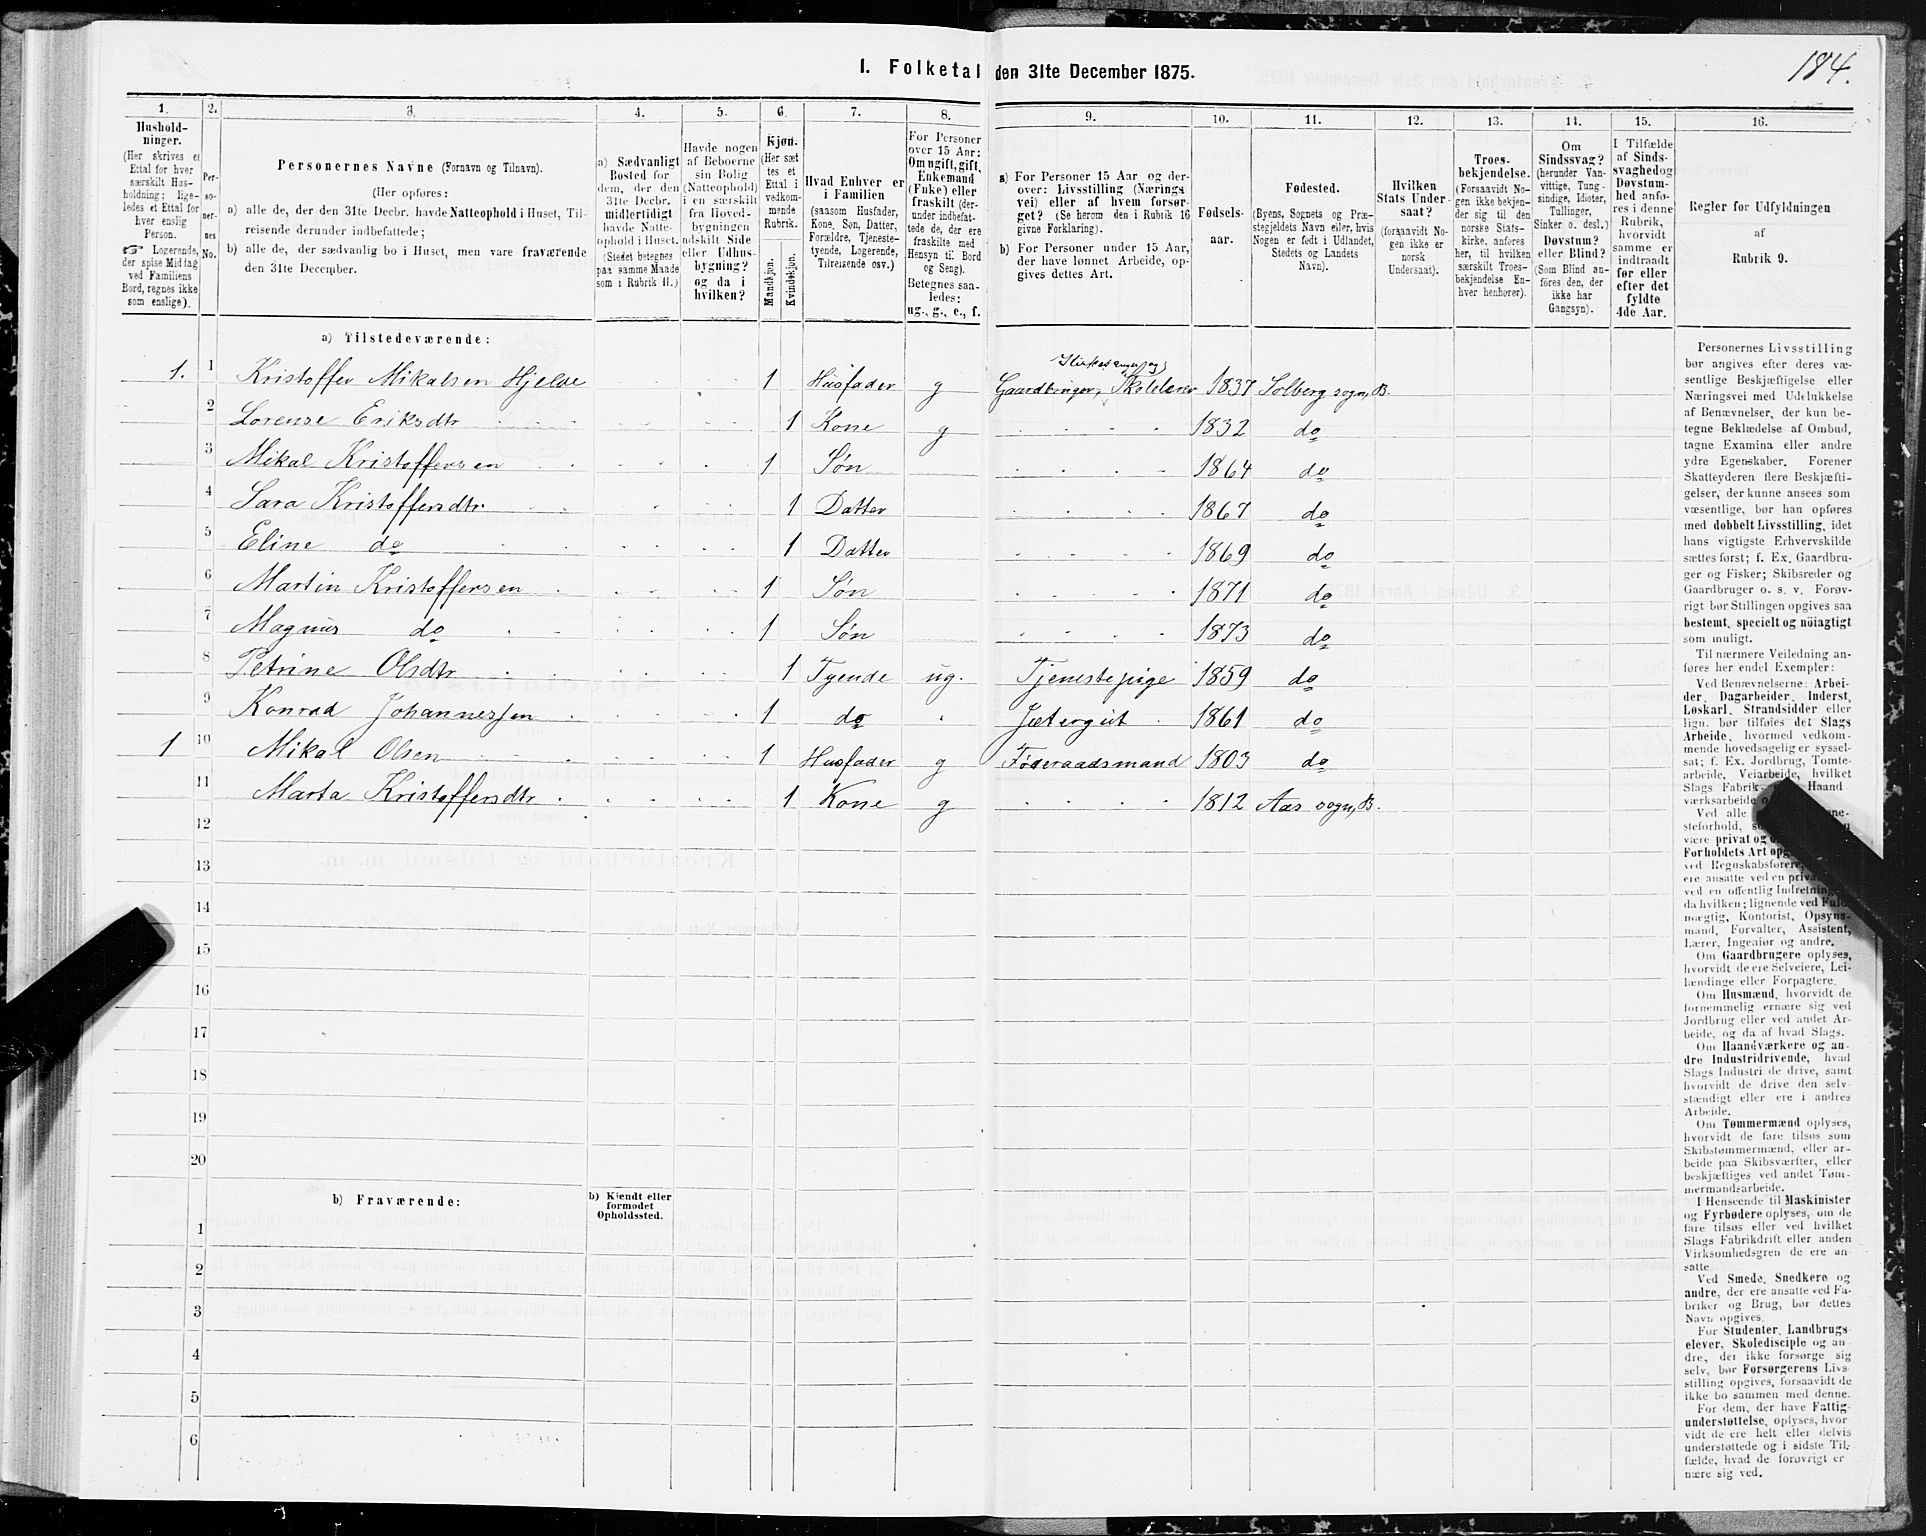 184.
1. Folketal den 31te December 1875.
1. 2. 3. 4. 5. 6. 7. 8. 9. 10. 11. 12. 13. 14. 15. 16.
Hushold-
ninger.
(Her skrives et
Ettal for hver
særskilt Hus-
holdning; lige-
ledes et Ettal for
hver enslig
Person.
☞ Logerende,
der spise Middag
ved Familiens
Bord, regnes ikke
som enslige).
Per-
so-
ner-
nes
No.
Personernes Navne (Fornavn og Tilnavn).
(Her opføres:
a) alle de, der den 31te Decbr. havde Natteophold i Huset, Til-
reisende derunder indbefattede;
b) alle de, der sædvanlig bo i Huset, men vare fraværende
den 31te December.
a) Sædvanligt
Bosted for
dem, der den
31te Decbr.
midlertidigt
havde Natte-
ophold i Huset.
(Stedet betegnes
paa samme Maade
som i Rubrik 11.)
Havde nogen
af Beboerne
sin Bolig
(Natteophold)
i en særskilt
fra Hoved-
bygningen
adskilt Side
eller Udhus-
bygning?
og da i
hvilken?
Kjøn.
(Her sæt
tes et
Ettal i
vedkom-
mende
Rubrik.
Mandkjøn.
Kvindekjøn.
Hvad Enhver er
i Familien
(saasom Husfader,
Kone, Søn, Datter,
Forældre, Tjeneste-
tyende, Logerende,
Tilreisende osv.)
For Personer
over 15 Aar:
Om ugift, gift,
Enkemand
(Enke) eller
fraskilt (der-
under indbefat-
tede de, der ere
fraskilte med
Hensyn til Bord
og Seng).
Betegnes saa-
ledes:
ug., g., e., f.
a) For Personer 15 Aar og der-
over: Livsstilling (Nærings-
vei) eller af hvem forsør-
get? (Se herom den i Rubrik 16
givne Forklaring).
b) For Personer under 15 Aar,
der have lønnet Arbeide, op-
gives dettes Art.
Fødsels-
aar.
Fødested.
(Byens, Sognets og Præ-
stegjeldets Navn eller, hvis
Nogen er født i Udlandet,
Stedets og Landets
Navn).
Hvilken
Stats Under-
saat?
(forsaavidt No-
gen ikke er
norsk
Undersaat).
Troes-
bekjendelse.
(Forsaavidt No-
gen ikke bekjen-
der sig til den
norske Stats-
kirke, anføres
her, til hvilken
særskilt Troes-
bekjendelse En-
hver henhører).
Om
Sindssvag?
(herunder Van-
vittige, Tung-
sindige, Idioter,
Tullinger,
Sinker o. desl.)
Døvstum?
eller Blind?
(Som Blind an-
føres den, der
ikke har
Gangsyn).
I Tilfælde
af Sinds-
svaghed og
Døvstum-
hed anfø-
res i denne
Rubrik,
hvorvidt
samme er
indtraadt
før eller
efter det
fyldte
4de Aar.
Regler for Udfyldningen
af
Rubrik 9.
a) Tilstedeværende:
1. 1 Kristoffer Mikalsen Hjelde 1 Husfader g Kirkesanger og Gaardbruger, Skolelærer 1837 Solberg sogn, B.
2 Lorense Eriksdtr 1 Kone g 1832 do
3 Mikal Kristoffersen 1 Søn 1864 do
4 Sara Kristoffersdtr 1 Datter 1867 do
5 Eline do 1 Datter 1869 do
6 Martin Kristoffersen 1 Søn 1871 do
7 Magnus do 1 Søn 1873 do
8 Petrine Olsdtr 1 Tyende ug. Tjenestepige 1859 do
9 Konrad Johannessen 1 do Jætergut 1861 do
1 10 Mikal Olsen 1 Husfader g Føderaadsmand 1803 do
11 Marta Kristoffersdtr 1 Kone g 1812 Aas sogn, B.
12
13
14
15
16
17
18
19
20
b) Fraværende:
b) Kjendt eller
formodet
Opholdssted.
1
2
3
4
5
6
Personernes Livsstilling
bør angives efter deres væ-
sentlige Beskjæftigelse eller
Næringsvei med Udelukkelse
af Benævnelser, der kun be-
tegne Beklædelse af Ombud,
tagne Examina eller andre
ydre Egenskaber. Forener
Skatteyderen flere Beskjæfti-
gelser, der kunne ansees som
væsentlige, bør han opføres
med dobbelt Livsstilling, idet
hans vigtigste Erhvervskilde
sættes først; f. Ex. Gaardbru-
ger og Fisker; Skibsreder og
Gaardbruger o. s. v. Forøv-
rigt bør Stillingen opgives saa
bestemt, specielt og nöiagtigt
som muligt.
Til nærmere Veiledning an-
føres her endel Exempler:
Ved Benævnelserne: Arbei-
der, Dagarbeider, Inderst,
Løskarl, Strandsidder eller
lign. bør tilføies det Slags
Arbeide, hvormed vedkom-
mende hovedsagelig er syssel-
sat; f. Ex. Jordbrug, Tomte-
arbeide, Veiarbeide, hvilket
Slags Fabrik- Haand
værksarbeide
Ved alle
steforhold,
være privat og
Forholdets Art
ved Regnskabsførere,
ere ansatte ved en
ved en offentlig Indretning
da hvilken; lignende ved
mægtig, Kontorist, Opsyns-
mand, Forvalter, Assistent,
Lærer, Ingeniør og andre.
Om Gaardbrugere oplyses,
hvorvidt de ere Selveiere, Lei-
lændinge eller Forpagtere.
Om Husmænd, hvorvidt de
fornemmelig ernære sig ved
Jordbrug eller ved andet Ar-
beide, og da af hvad Slags.
Om Haandværkere og an-
dre Industridrivende, hvad
Slags Industri de drive, samt
hvorvidt de drive den selv-
stændigt eller ere i andres
Arbeide.
Om Tømmermænd oplyses,
hvorvidt de fare tilsøs som
Skibstømmermænd, eller ar-
beide paa Skibsværfter, eller
beskjæftiges ved andet Tøm-
mermandsarbeide.
I Henseende til Maskinister
og Fyrbødere oplyses, om de
fare tilsøs eller ved hvilket
Slags Fabrikdrift eller anden
Virksomhedsgren de ere an-
satte.
Ved Smede, Snedkere og
andre, der ere ansatte ved Fa-
briker og Brug, bør dettes
Navn opgives.
For Studenter, Landbrugs-
elever, Skoledisciple og an-
dre, der ikke forsørge sig
selv, bør Forsørgerens Livs-
stilling opgives, forsaavidt de
ikke bo sammen med denne.
For dem, der have Fattig-
understøttelse, oplyses, hvor-
vidt de ere helt eller delvis
understøttede og i sidste Til-
fælde, hvad de forøvrigt er
nære sig ved.